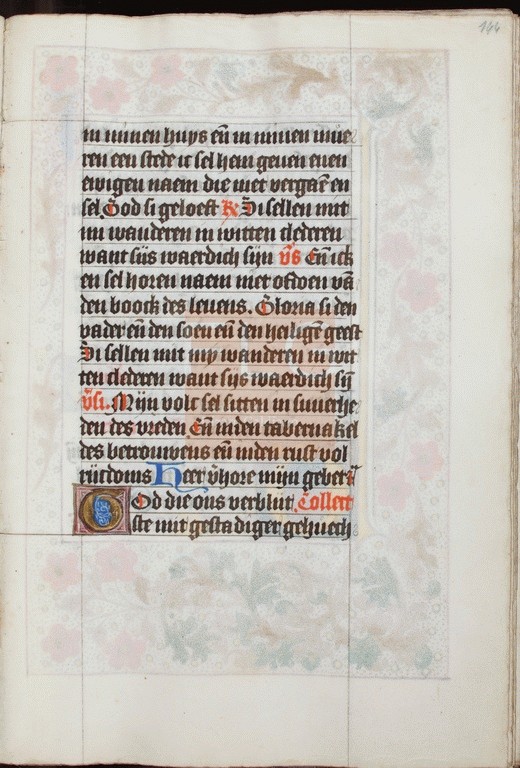 144
in minen huys eñ in minen mue
ren een stede ic sel hem geuen enen
ewigen naem die niet vergaẽ en
sel. God si geloeft R̃ Di sellen mit
mi wanderen in witten clederen
want siis waerdich sijn v̄s Eñ ick
en sel horen naem niet ofdoen vã
den boeck des leuens. Gloria si den
vader eñ den soen eñ den heiligẽ geest
Di sellen mit my wanderen in wit
ten clederen want sijs waerdich sijñ
v̄si. Mijn volc sel sitten in suuerhe
den des vreden Eñ inden tabernakel
des betrouwens eñ inden rust vol
rijcdoms Heer v̄hore mijn gebet
God die ons verblijt Collect
ste mit gestadiger gehuech